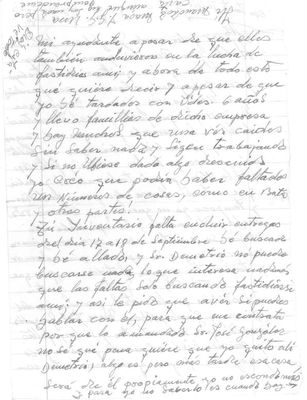 mi ayudante apesar de que ellos
también anduvieron en la lucha de
fastidiar ami; y ahora de todo esto
qué quiere decir y apesar de que
yo hé tardados con Vdes. 6 años
y llevo familias de dicha empresa
y hay muchos que unas vós caidos
sin saber nada y siguen trabajando
y si no Uviese dado algo descuidos
yo Creo que podría haber faltados
los Números de cosas, como en Bata
y otras partes.
Inventario falta encluir entregas
del dia 12 a 18 de Septiembre hé buscado
y hé allado, y Sr. Demetrio nó puede
buscarse nada, lo que interesa
que las faltas solo buscando fastidiarse
ami; y asi le pido que avér si puedes
hablar con él, para que me
por que lo a mandado Sr. José González
no sé qué para quiere que yo quito allí
Demetrio, algo es pero más tarde esa cosa
Será dice él propiamente yo no
para nó Saberlo es cuando hay